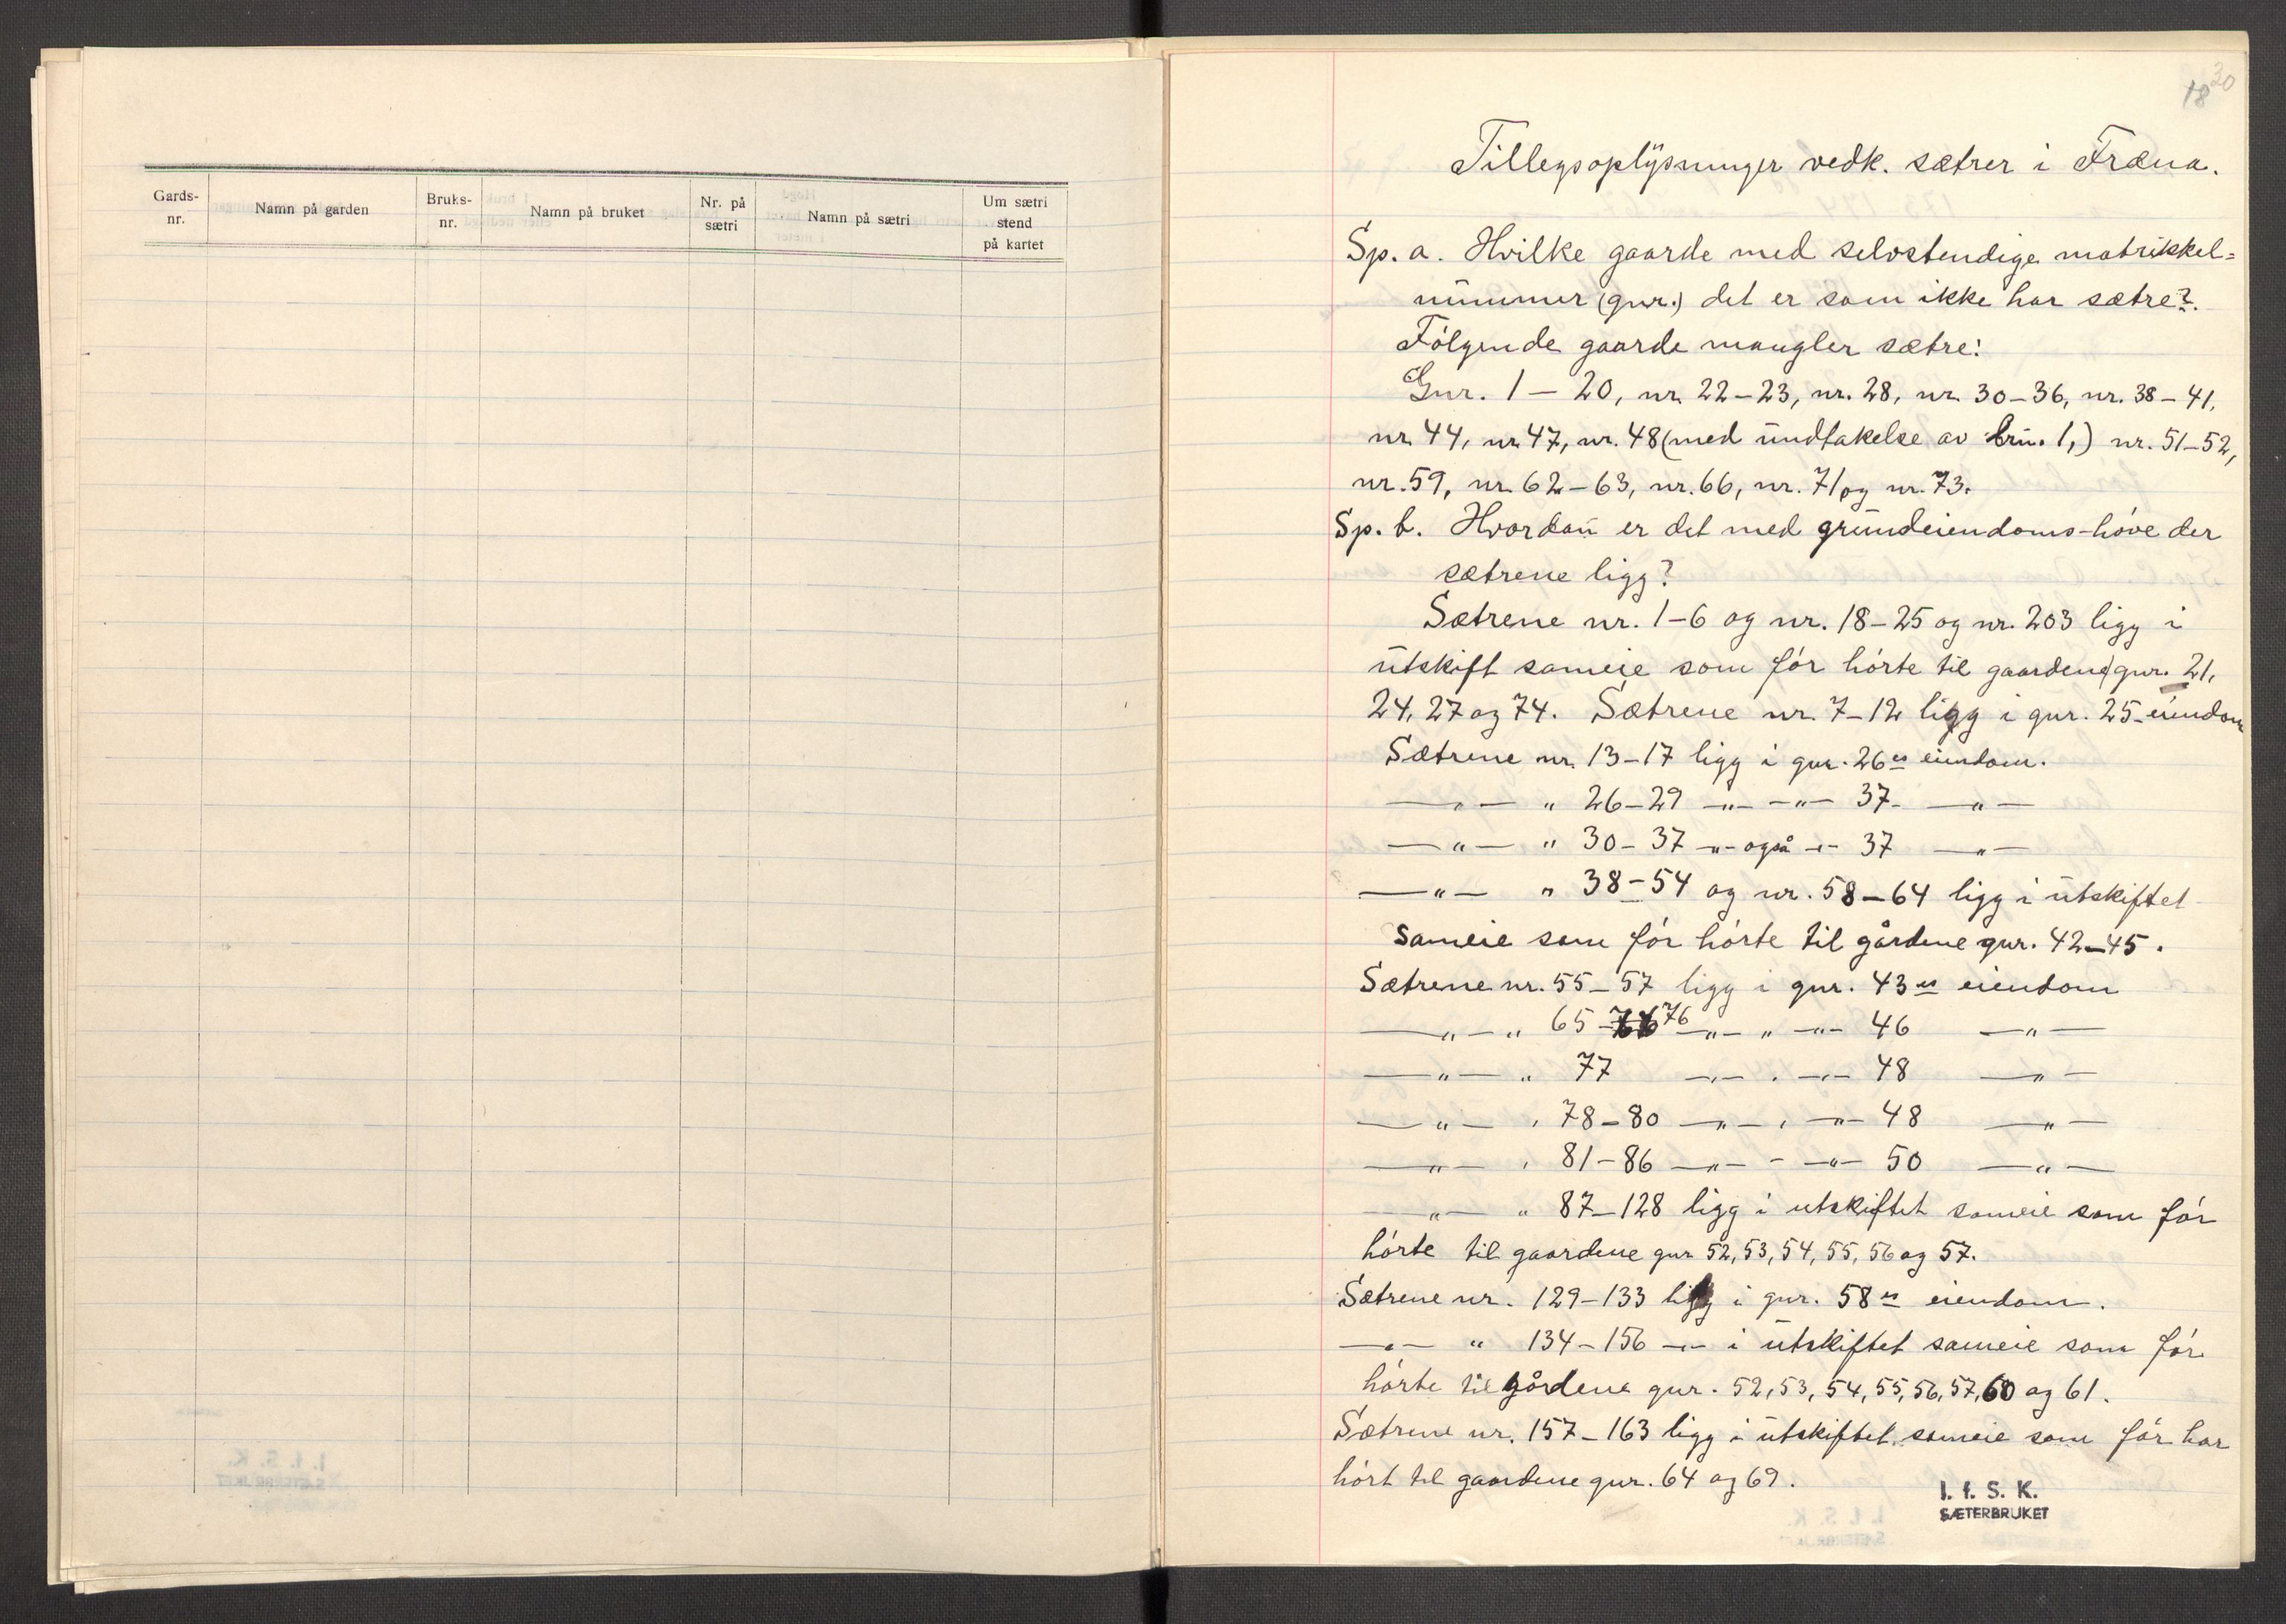 Gards-nr. Namn på garden Bruks-nr. Namn på bruket Nr. på sætri Namn på sætri Um sætri stend på kartet
30
18
Tillegsoplysninger vedk. sætrer i Fræna.
Sp. a. Hvilke gaarde med selvstendige matrikkel=
nummer (gnr.) det er som ikke har sætre?
Følgende gaarde mangler sætre:
Gnr. 1 – 20, nr. 22 – 23, nr. 28, nr. 30 – 36, nr. 38 – 41,
nr. 44, nr. 47, nr. 48 (med undtakelse av brn. 1,) nr. 51 – 52,
nr. 59, nr. 62 – 63, nr. 66, nr. 71 og nr. 73.
Sp. b. Hvordan er det med grundeiendoms-høve der
sætrene ligg?
Sætrene nr. 1 – 6 og nr. 18 – 25 og nr. 203 ligg i
utskift sameie som før hørte til gaardene gnr. 21,
24, 27 og 74. Sætrene nr. 7 – 12 ligg i gnr. 25 eiendom
Sætrene nr. 13 – 17 ligg i gnr. 26es eiendom.
— " — " 26 – 29 — " — — " — 37 — " —
— " — " 30 – 37 — " — også — " — 37 — " —
— " — " 38 – 54 og nr. 58 – 64 ligg i utskiftet
sameie som før hørte til gårdene gnr. 42 – 45.
Sætrene nr. 55 – 57 ligg i gnr. 43es eiendom
— " — " 65 – 76 — " — " — " — 46 — " —
— " — " 77 — " — " — " — 48 — " —
— " — " 78 – 80 — " — " — " — 48 — " —
— " — " 81 – 86 — " — " — " — 50 — " —
— " — " 87 – 128 ligg i utskiftet sameie som før
hørte til gaardene gnr 52, 53, 54, 55, 56 og 57.
Sætrene nr. 129 – 133 ligg i gnr. 58es eiendom.
— " — " 134 – 156 — " — i utskiftet sameie som før
hørte til gårdene gnr. 52, 53, 54, 55, 56, 57, 60 og 61.
Sætrene nr. 157 – 163 ligg i utskiftet sameie som før har
hørt til gaardene gnr. 64 og 69.
I. f. S. K.
SÆTERBRUKET